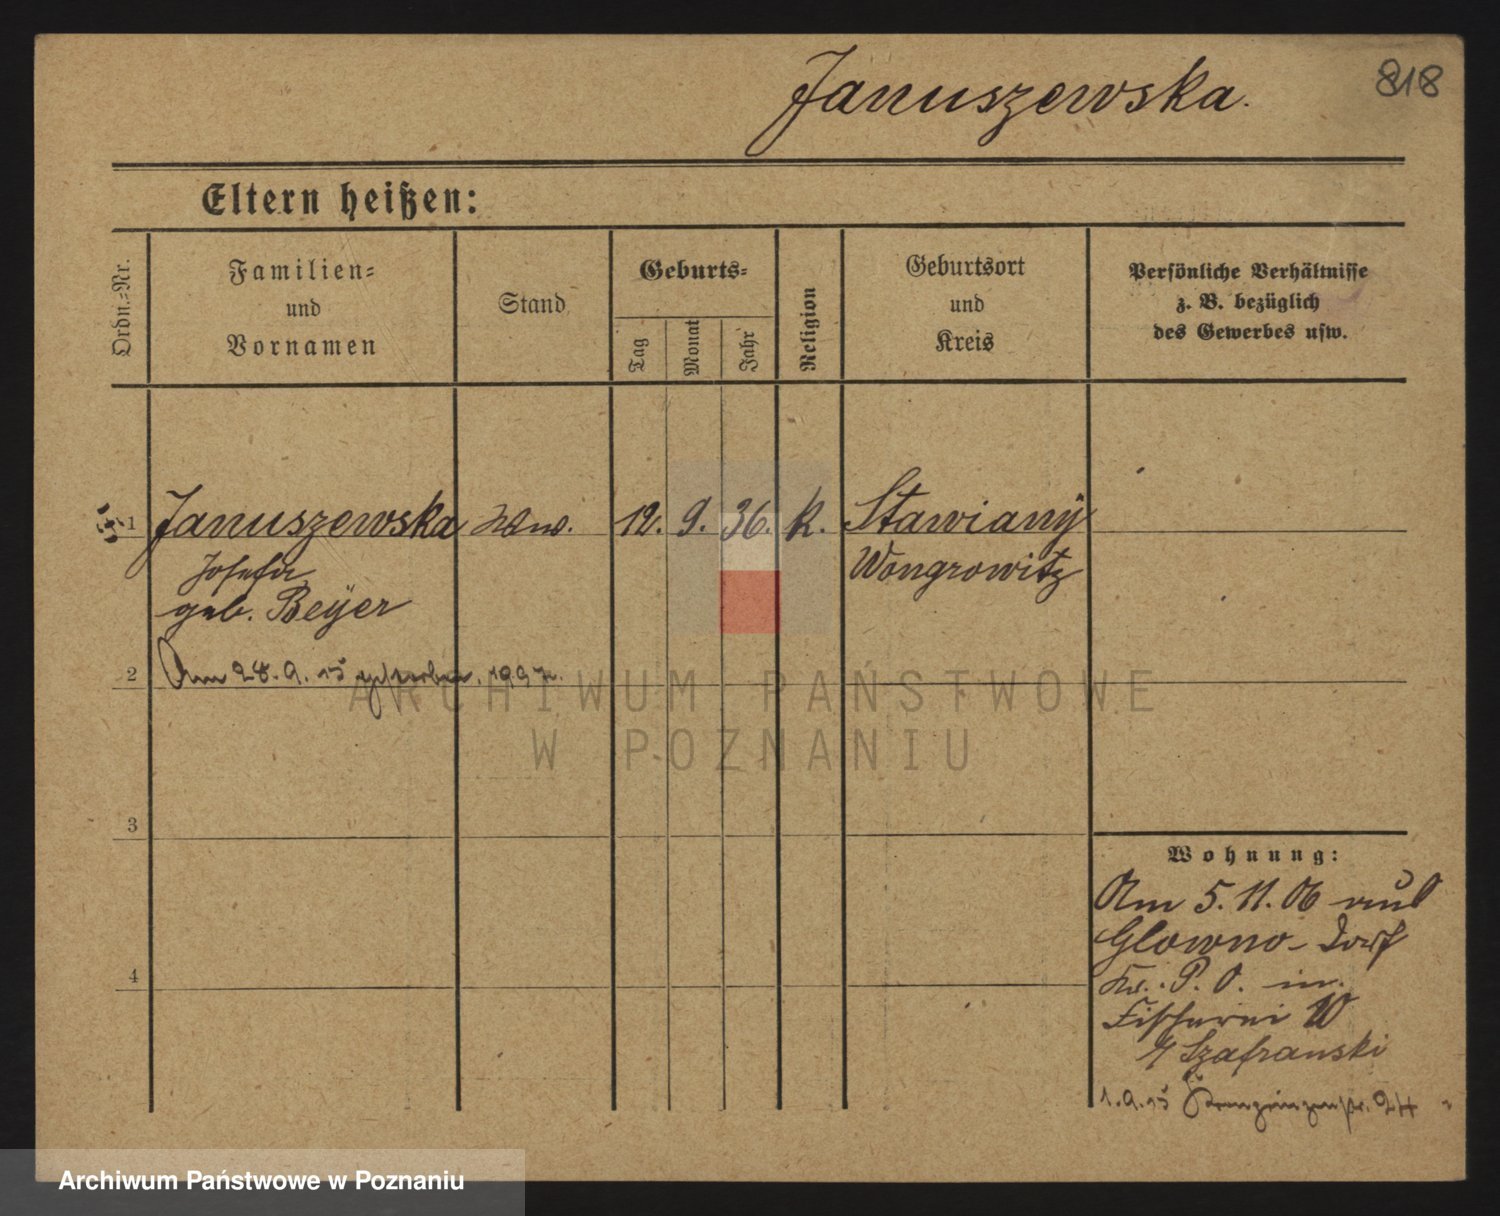 818
Januszewska.
Eltern heißen:
Ordn.-Nr.
Familien-
und
Vornamen
Stand
Geburts-
Tag
Monat
Jahr
Religion
Geburtsort
und
Kreis
Persönliche Verhältnisse
z. B. bezüglich
des Gewerbes usw.
1 Januszewska Ww. 12. 9. 36. k. Stawiany
Josefa Wongrowitz
geb. Beyer
2 Am 28.9.15 gestorben.
3
4
Wohnung:
Am 5.11.06 aus
Glowno-Dorf
Kr. P. O. in
Fischerei 10
Szafranski
1.9.15 Kronprinzenstr. 94
ARCHIWUM PAŃSTWOWE
W POZNANIU
Archiwum Państwowe w Poznaniu